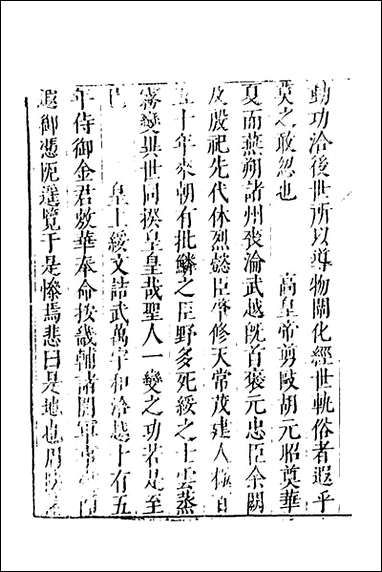 動功洽後世所以導物闡化經世軌俗者遐乎
莫之敢忽也　　　高皇帝剪敺胡元昭奠華
夏而燕朔諸州喪淪武越旣首褒元忠臣余闕
及殷祀先代休烈懿臣修天常茂建人極百
五十年來朝有批鱗之臣野多死綏之士雲蒸
霧變與世同禩皇皇哉聖人一變之功若是至
已　　　皇上綏文詰武萬宇和洽越十有五
年侍御金君敖華奉命按畿輔諸關軍
遐御憑阨遥覽于是愀焉悲曰是地也